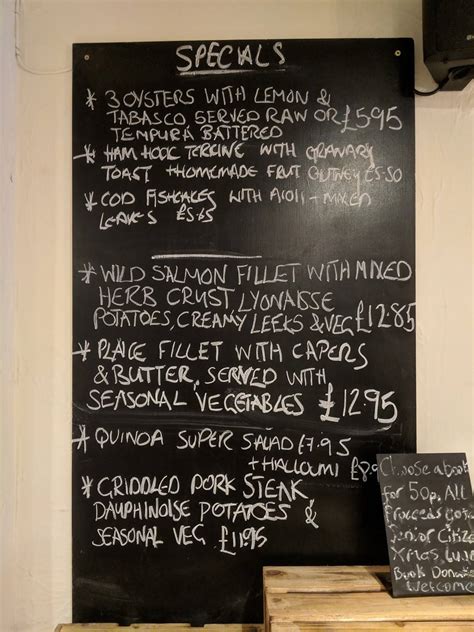 SPECIALS
* 3 OYSTERS WITH LEMON &
TABASCO SERVED RAW OR £5.95
TEMPURA BATTERED
* HAM HOCK TERRINE WITH GRANARY
TOAST + HOMEMADE FRUIT CHUTNEY £5.50
* COD FISHCAKES WITH AIOLI - MIXED
LEAVES £5.65
* WILD SALMON FILLET WITH MIXED
HERB CRUST LYONAISSE
POTATOES, CREAMY LEEKS & VEG £12.85
* PLAICE FILLET WITH CAPERS
& BUTTER, SERVED WITH
SEASONAL VEGETABLES £12.95
* QUINOA SUPER SALAD £7.95
+ HALLOUMI £8.9
* GRIDDLED PORK STEAK
DAUPHINOISE POTATOES &
SEASONAL VEG £11.95
Choose a book
for 50p. All
Proceeds go to
Senior Citiz
Xmas Lun
Book Donat
Welcome